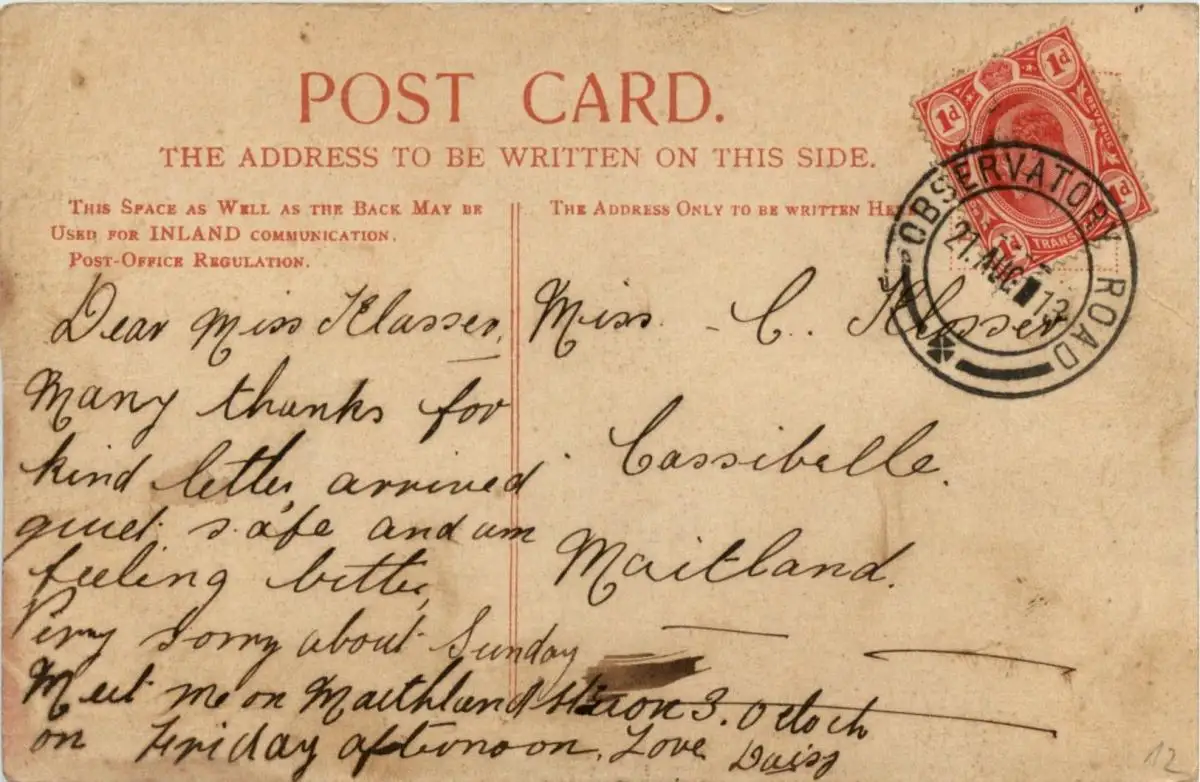 POST CARD.
THE ADDRESS TO BE WRITTEN ON THIS SIDE.
THIS SPACE AS WELL AS THE BACK MAY BE
USED FOR INLAND COMMUNICATION.
POST-OFFICE REGULATION.
Dear Miss Klasser,
Many thanks for
kind letter, arrived
quiet safe and am
feeling better,
Very sorry about Sunday
Meet me on Maithland station 3. oclock
on Friday afternoon. Love Daisy
THE ADDRESS ONLY TO BE WRITTEN HE
Miss. C. Klasser
Cassibelle.
Maitland.
1d 1d
REVENUE
1d
1d
TRANS
OBSERVATORY ROAD
21. AUG 13
12